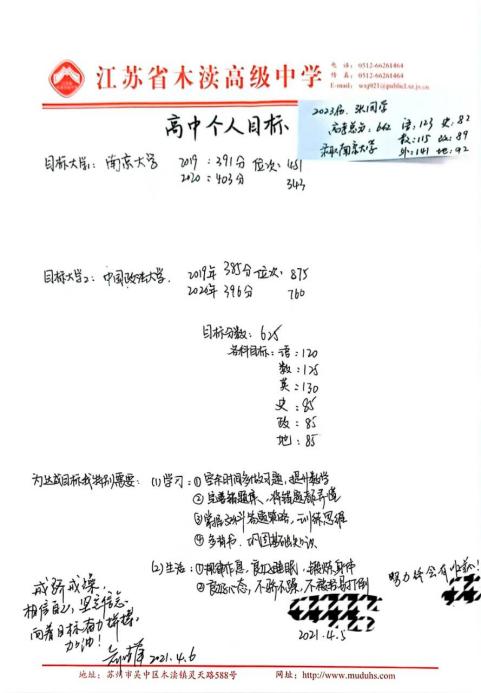 江苏省木渎高级中学
电 话：0512-66261464
传 真：0512-66261464
E-mail：wxj921@public1.sz.js.cn
2023届，张同学
高考总分：662
录取南京大学
语：123 史：82
数：115 政：89
外：141 地：92
高中个人目标
目标大学1：南京大学 2019：391分 位次：451
2020：403分 343
目标大学2：中国政法大学. 2019年 385分 位次：875
2020年 396分 760
目标分数：625
各科目标：语：120
数：125
英：130
史：85
政：85
地：85
为达成目标我特别需要：(1)学习：①空余时间多做习题，提升数学
②完善错题集，将错题都弄懂
③掌握文科答题策略，训练思维
④多背书，巩固基础知识
(2)生活：①规律作息，良好睡眠，锻炼身体
②良好心态，不骄不躁，不被轻易打倒
努力终会有收获！
2021.4.5
戒骄戒躁，
相信自己，坚定信念，
向着目标奋力拼搏，
加油！
2021.4.6
地址：苏州市吴中区木渎镇灵天路588号 网址：http://www.muduhs.com